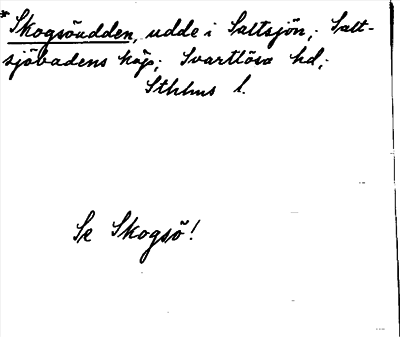 *Skogsöudden, udde i Saltsjön; Salt-
sjöbadens köp; Svartlösa hd;
Sthlms l.
Se Skogsö!